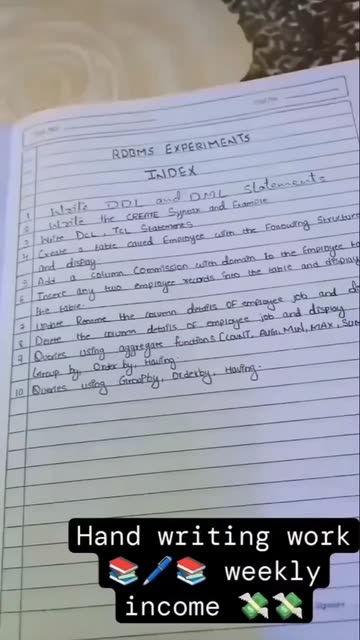 RDBMS EXPERIMENTS
INDEX
1 Write DDL and DML Statements
2 Write the CREATE Syntax and Example
3 Write DCL, TCL Statements
4 Create a table called Employee with the Following Structure
and display
5 Add a column Commission with domain to the Employee
6 Insert any two employee records into the table and display
the table.
7 Update Rename the column details of employee job and
8 Delete the column details of employee job and display
9 Queries using aggregate functions (COUNT, AUG, MIN, MAX, SUM
Group by, Order by, Having
10 Queries using Groupby, Orderby, Having.
Hand writing work
📚🖊️📚 weekly
income 💸💸